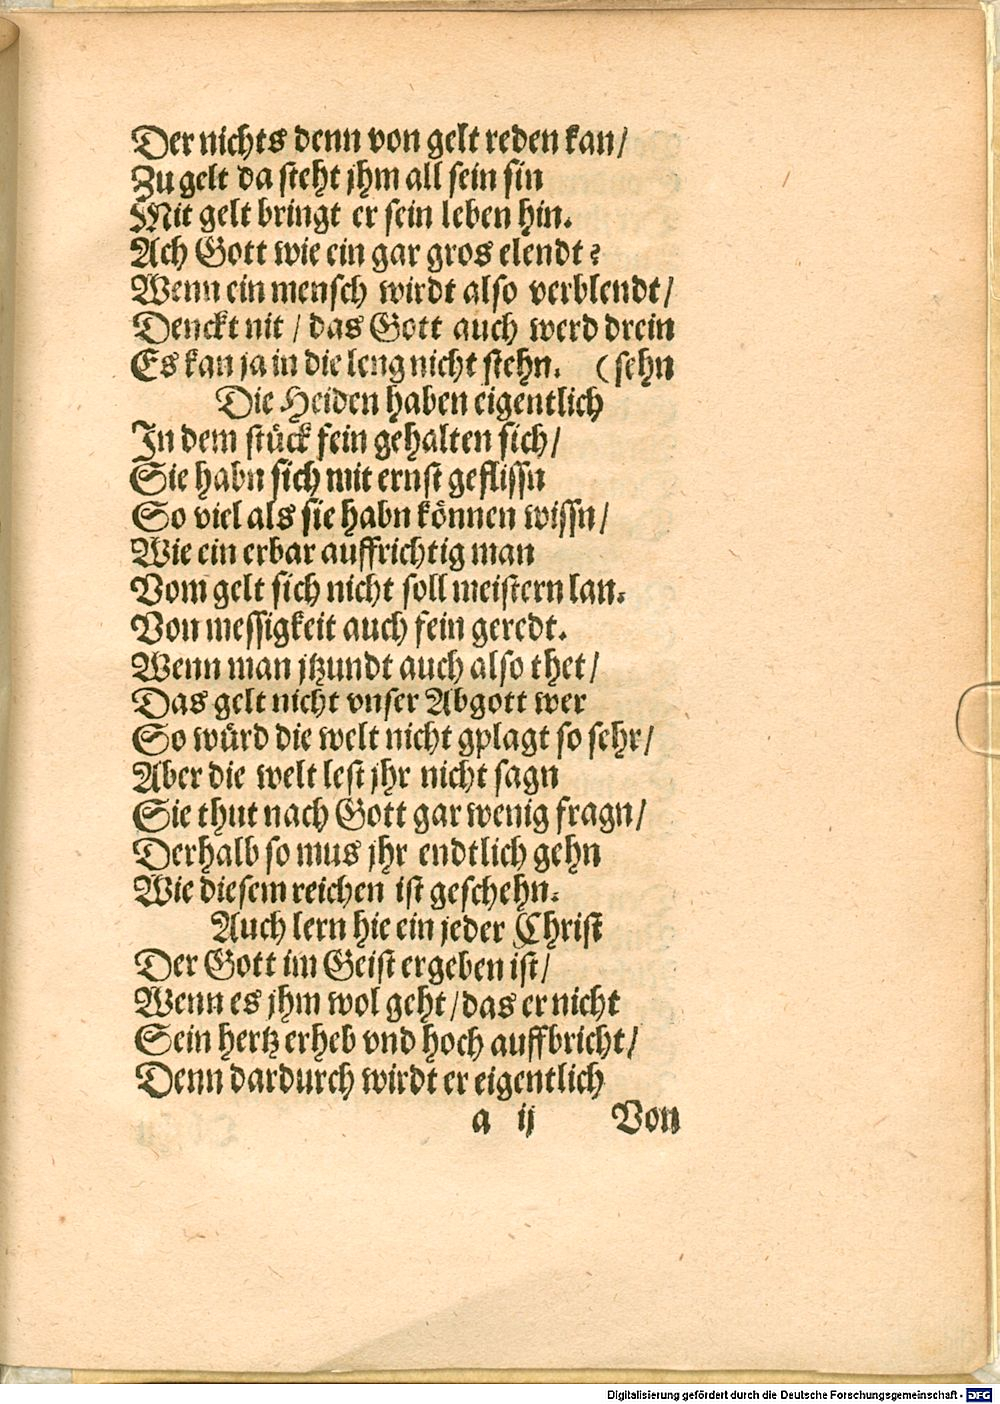 Der nichts denn von gelt reden kan/
Zu gelt da steht jhm all sein sin
Mit gelt bringt er sein leben hin.
Ach Gott wie ein gar gros elendt?
Wenn ein mensch wirdt also verblendt/
Denckt nit / das Gott auch werd drein
Es kan ja in die leng nicht stehn. (sehn
Die Heiden haben eigentlich
In dem stück fein gehalten sich/
Sie habn sich mit ernst geflissn
So viel als sie habn können wissn/
Wie ein erbar auffrichtig man
Vom gelt sich nicht soll meistern lan.
Von messigkeit auch fein geredt.
Wenn man jtzundt auch also thet/
Das gelt nicht vnser Abgott wer
So würd die welt nicht gplagt so sehr/
Aber die welt lest jhr nicht sagn
Sie thut nach Gott gar wenig fragn/
Derhalb so mus jhr endtlich gehn
Wie diesem reichen ist geschehn.
Auch lern hie ein jeder Christ
Der Gott im Geist ergeben ist/
Wenn es jhm wol geht/das er nicht
Sein hertz erheb vnd hoch auffbricht/
Denn dardurch wirdt er eigentlich
a ij Von
Digitalisierung gefördert durch die Deutsche Forschungsgemeinschaft - DFG